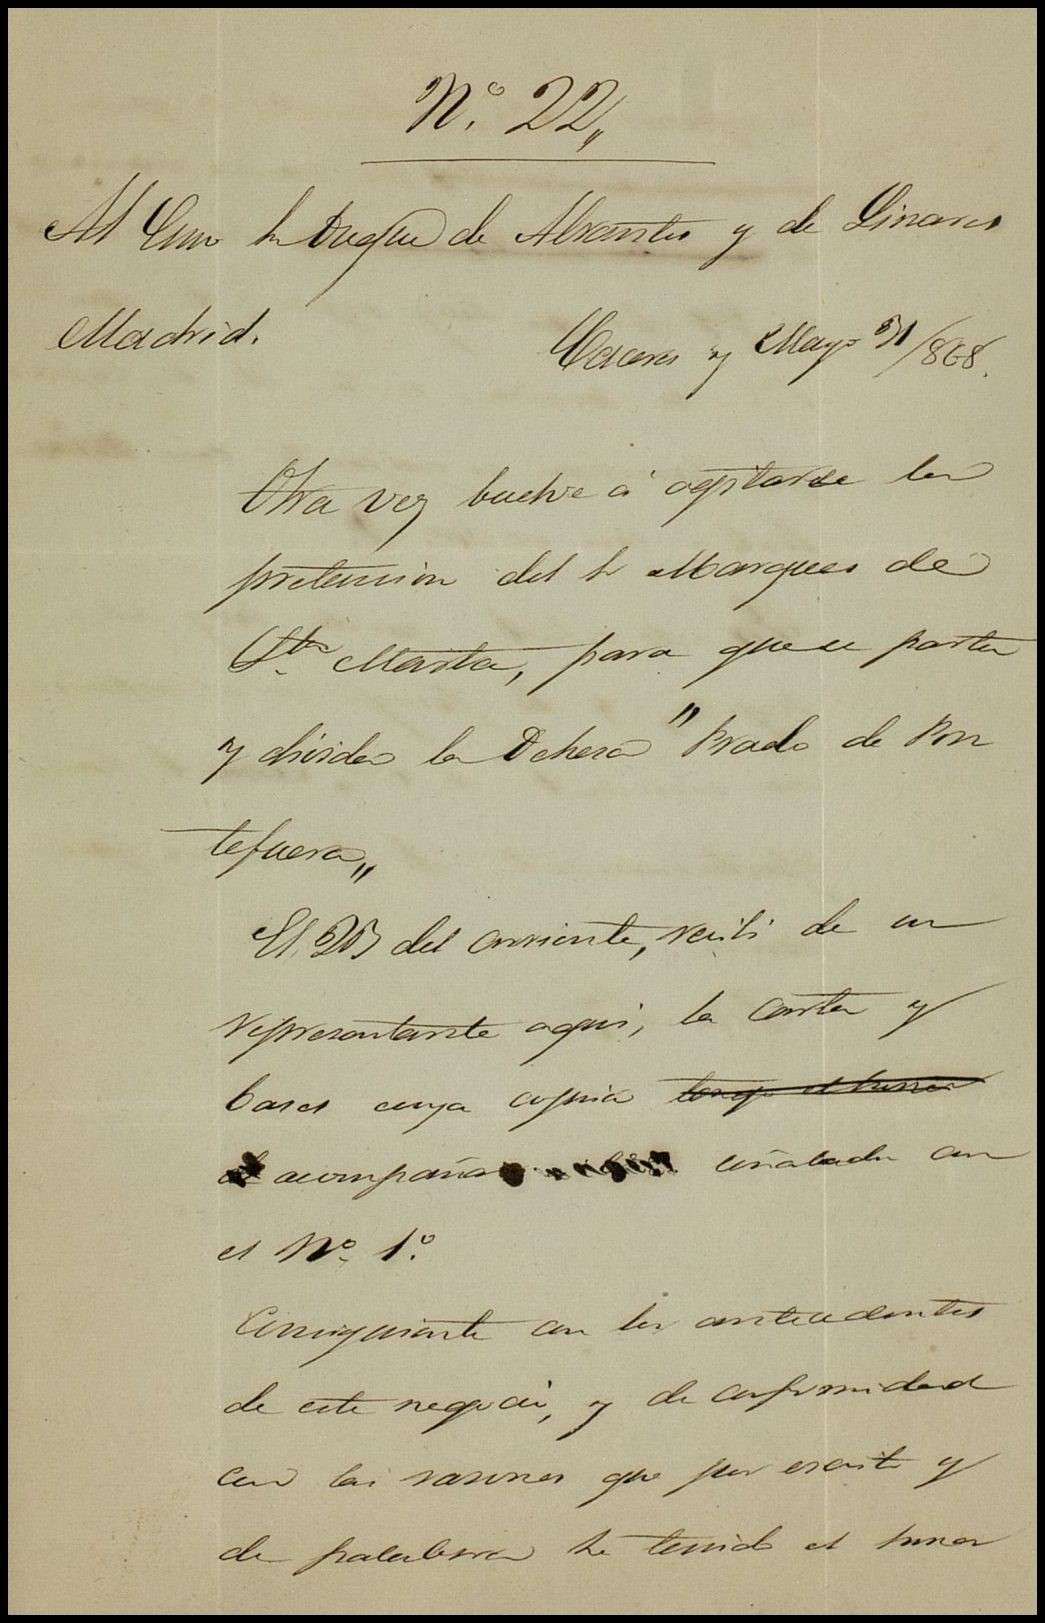 Nº. 22,,
Al Exmo Sr Duque de Abrantes y de Linares
Madrid.
Caceres y Mayo 31/868.
Otra vez buelve á agitarse la
pretension del Sr Marques de
Sta. Marta, para que se parta
y divida la Dehesa "Prado de Pon
tefuera„
El 25 del corriente, recibi de su
representante aqui, la carta y
bases cuya copia tengo el honor
acompaña señalada con
el Nº. 1º.
Consiguiente con los antecedentes
de este negocio, y de conformidad
con las razones que por escrito y
de palabra he tenido el honor